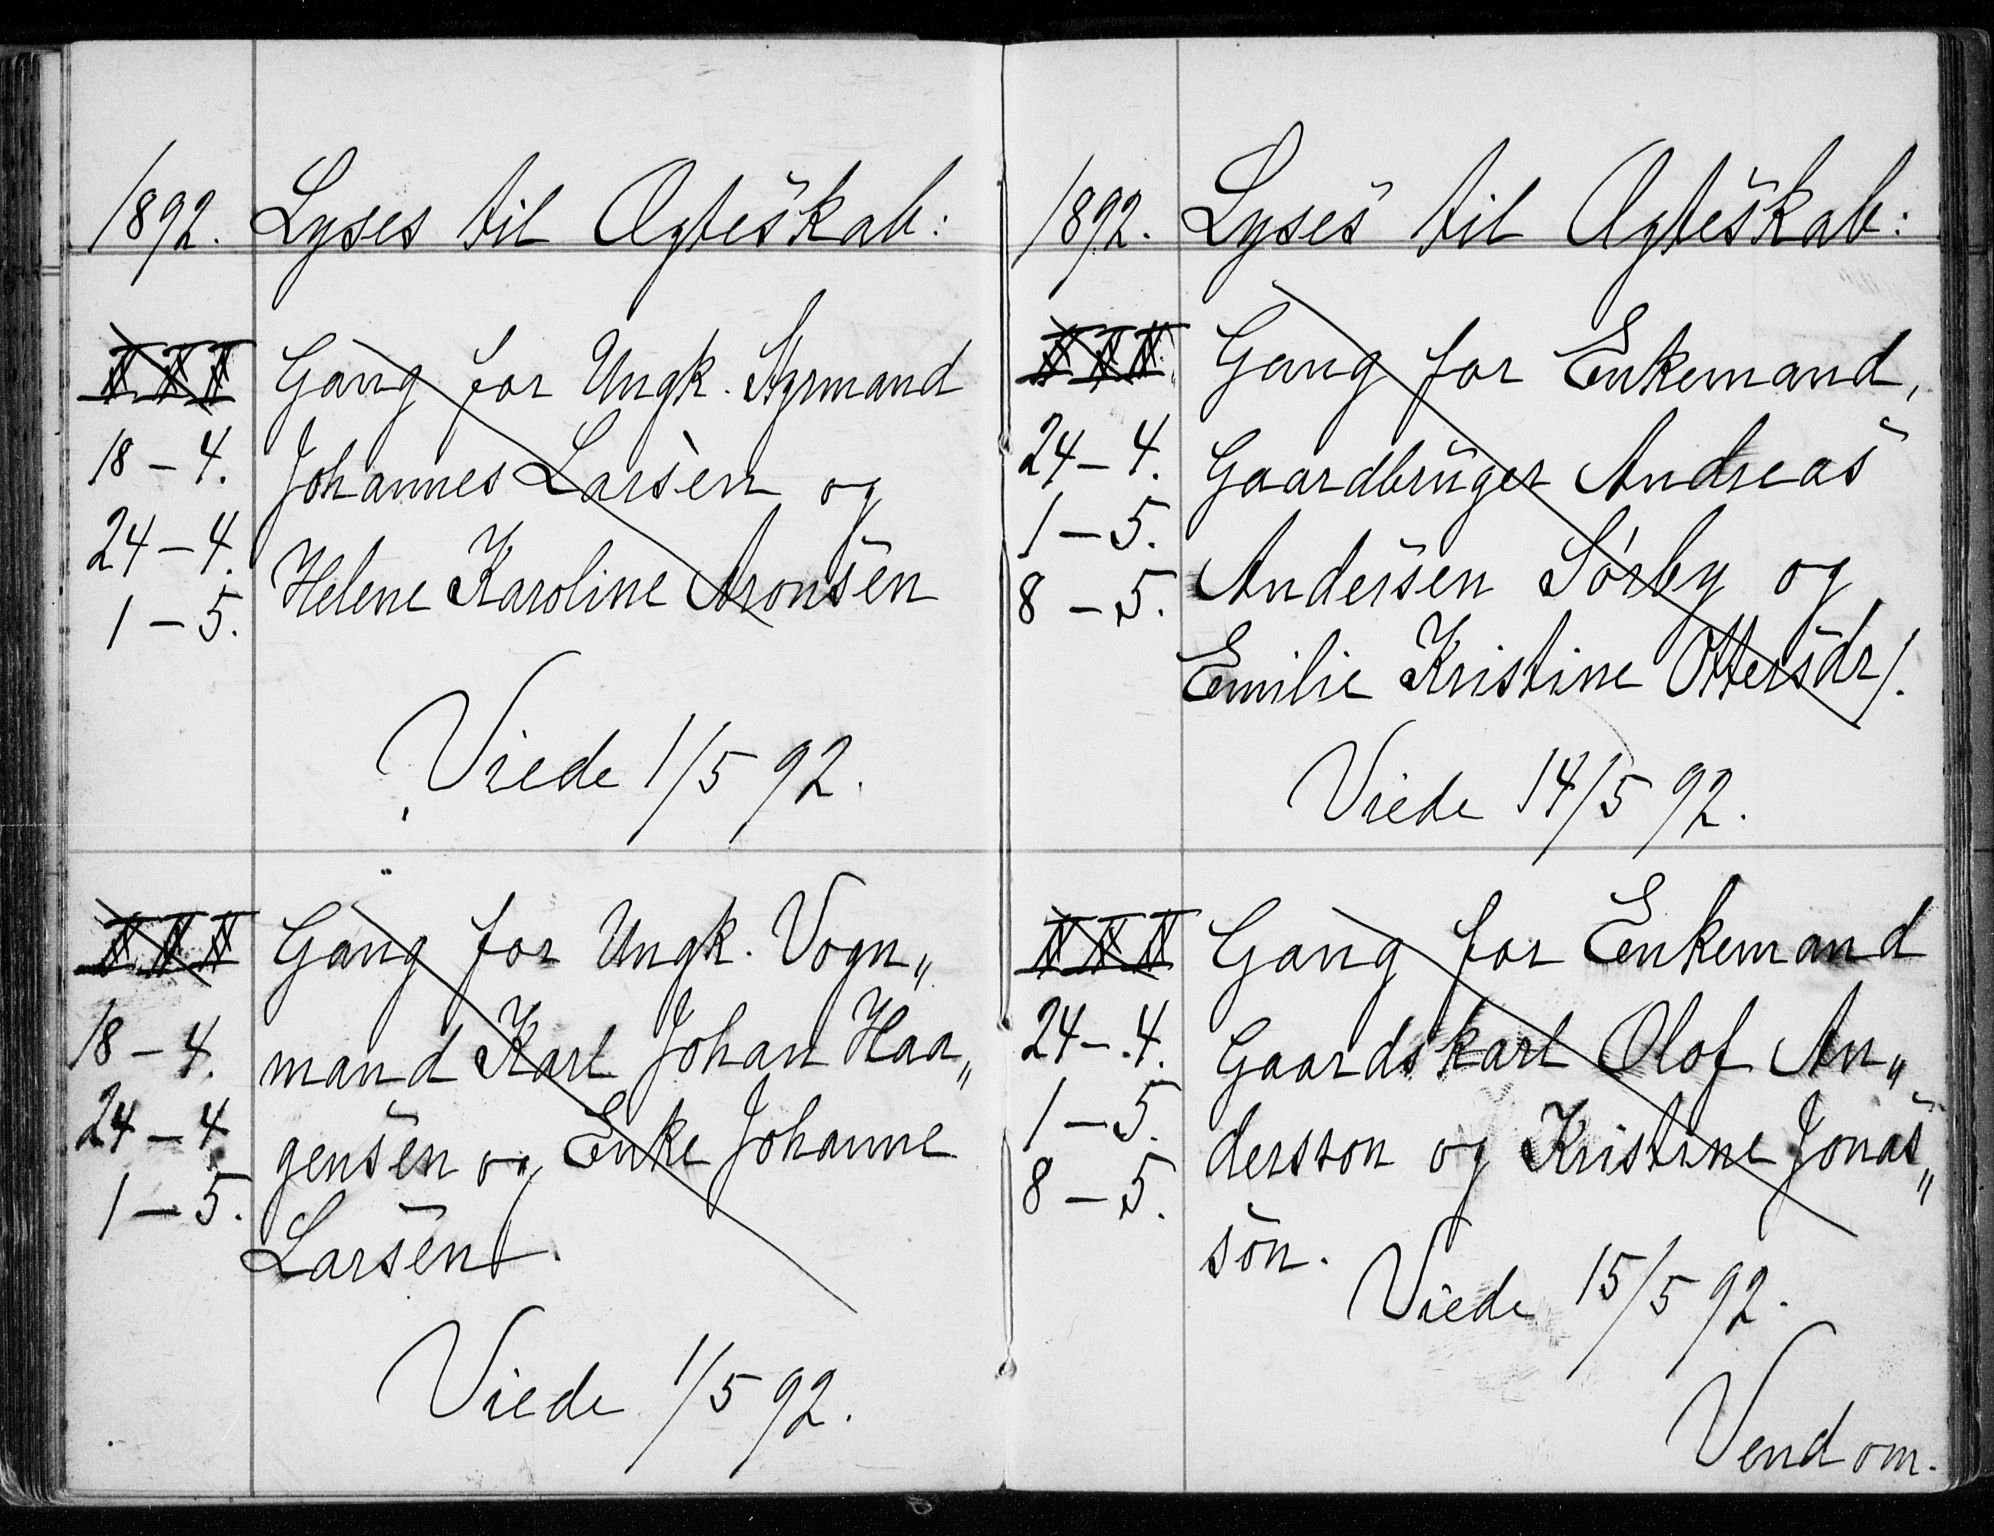 1892. Lyses til Ægteskab:
III Gang for Ungk. Styrmand
18 - 4. Johannes Larsen og
24 - 4. Helene Karoline Aronsen
1 - 5.
Viede 1/5 92.
III Gang for Ungk. Vogn„
18 - 4. mand Karl Johan Haa„
24 - 4 gensen og Enke Johanne
1 - 5. Larsen.
Viede 1/5 92.
1892. Lyses til Ægteskab:
III Gang for Enkemand,
24 - 4. Gaardbruger Andreas
1 - 5. Andersen Sörby og
8 - 5. Emilie Kristine Ottersdr/.
Viede 14/5 92.
III Gang for Enkemand
24 - 4. Gaardskarl Olof An„
1 - 5. dersson og Kristine Jonas„
8 - 5. son.
Viede 15/5 92.
Vend om.